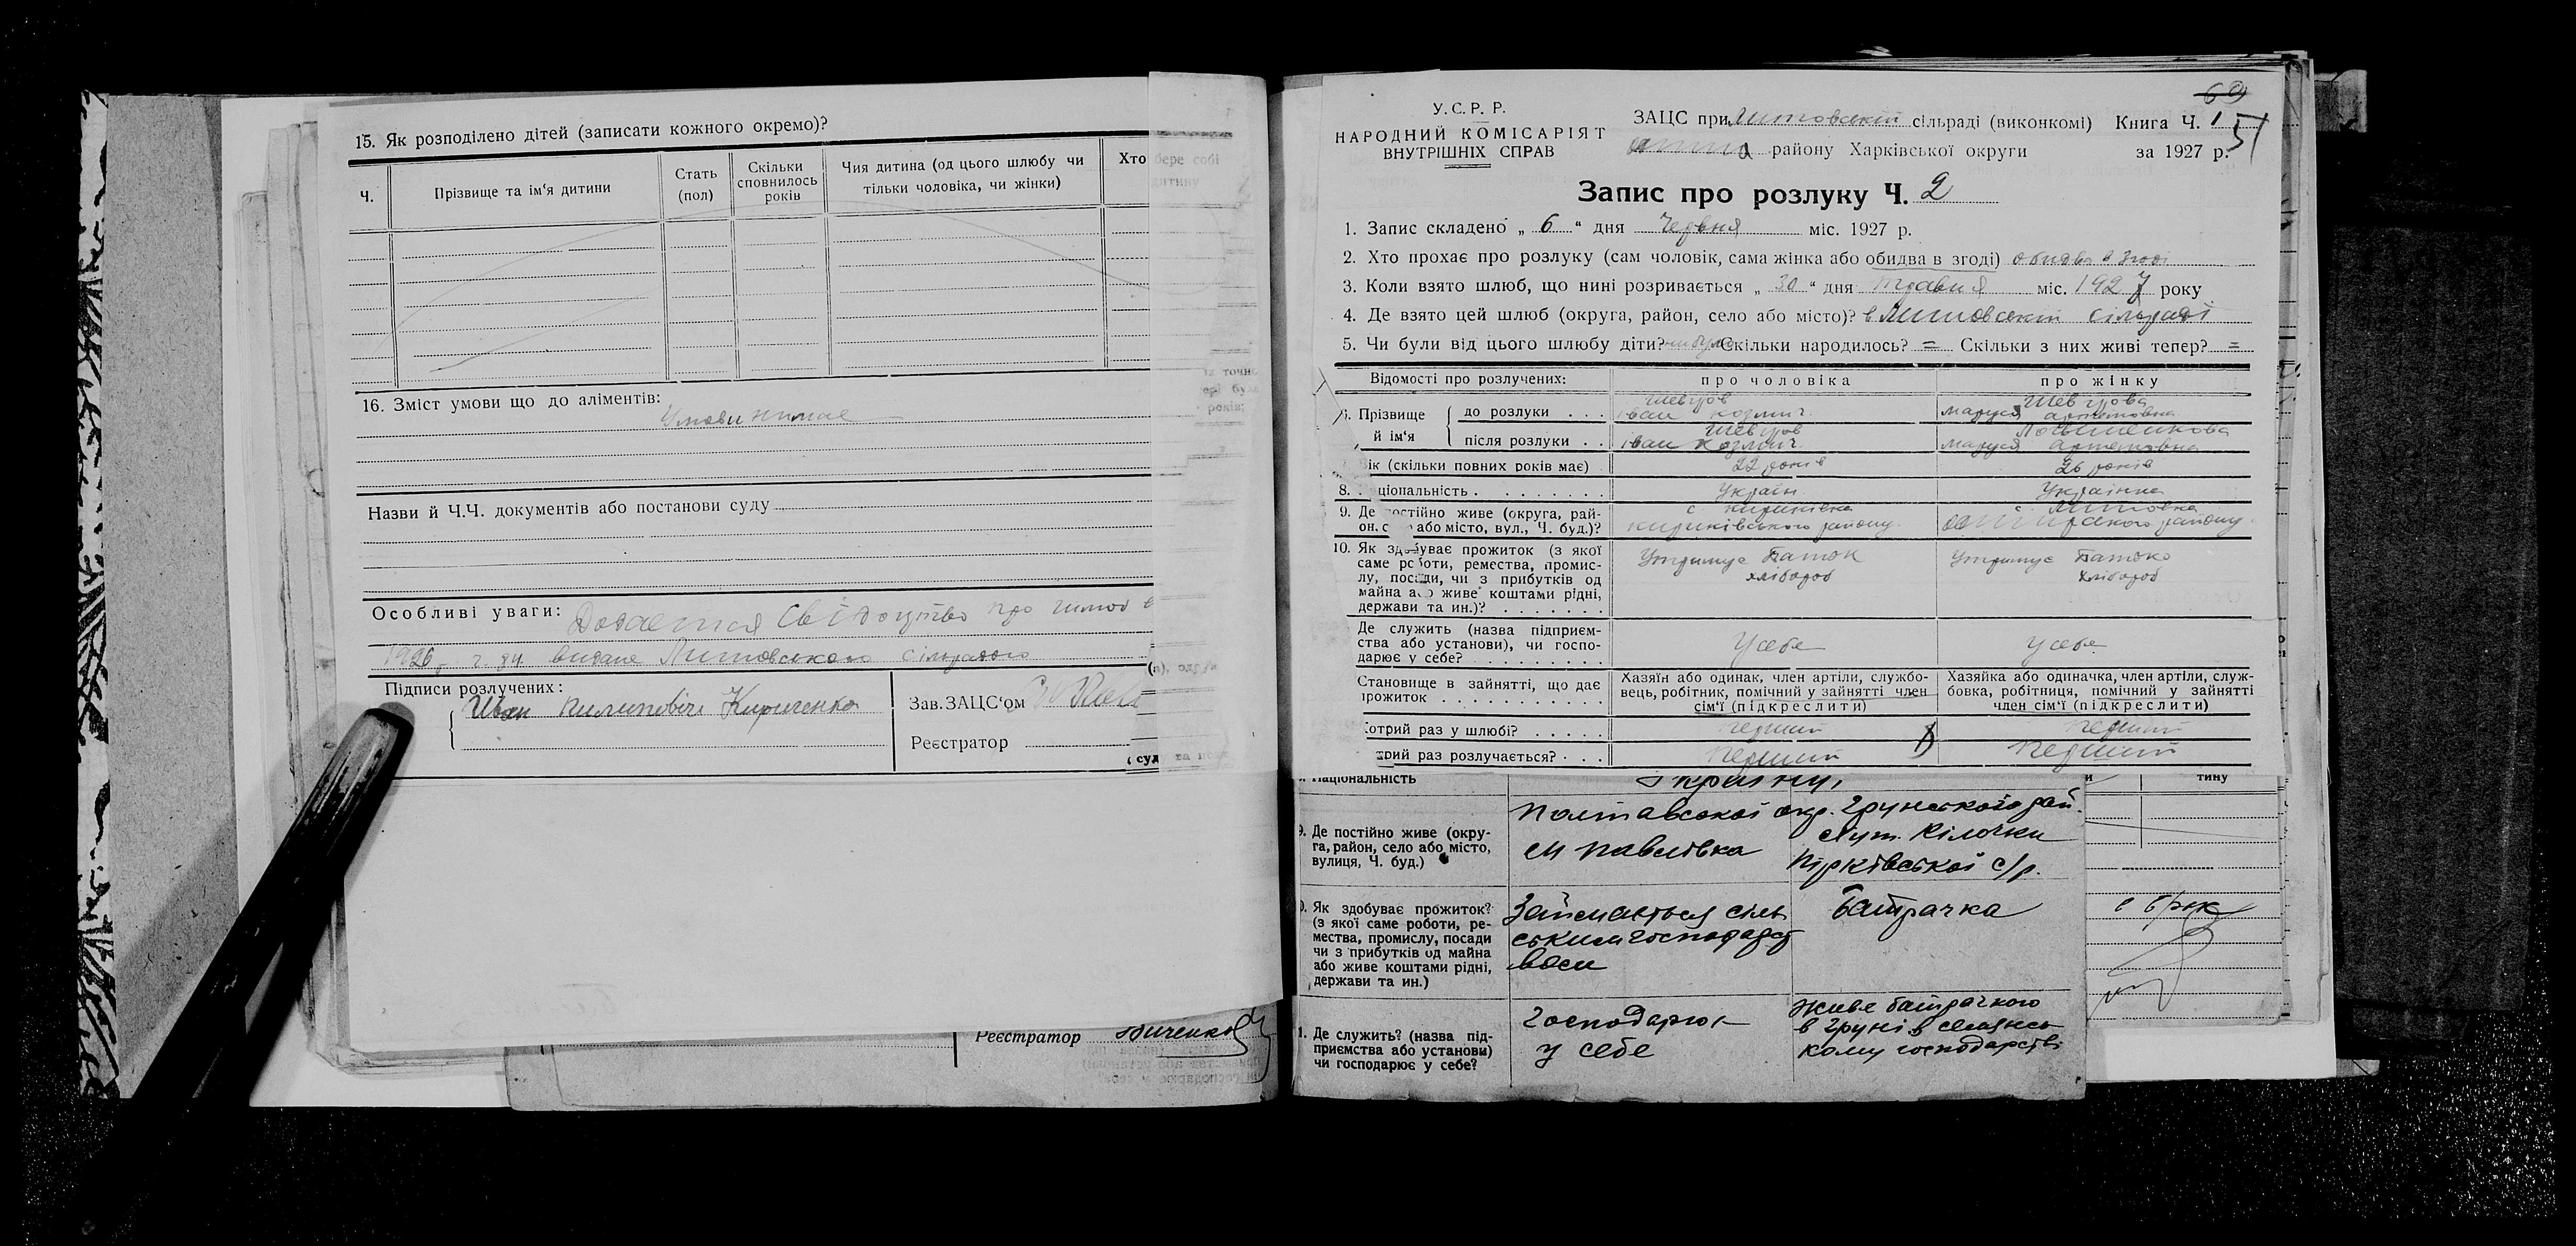 15. Як розподілено дітей (записати кожного окремо)?
Ч.
Прізвище та ім'я дитини
Стать
(пол)
Скільки
сповнилось
років
Чия дитина (од цього шлюбу чи
тільки чоловіка, чи жінки)
Хто бере собі
дитину
16. Зміст умови що до аліментів:
Умови нимае
Назви й Ч.Ч. документів або постанови суду
Особливі уваги: Додається Свідоцтво про
1926 г. 84 видане Литовською сільрадою
Підписи розлучених:
Иван Пилипович Кириченко
Зав. ЗАЦС'ом
Реєстратор
Реєстратор
69
У.С.Р.Р.
НАРОДНИЙ КОМІСАРІЯТ
ВНУТРІШНІХ СПРАВ
ЗАЦС при Литовській сільраді (виконкомі) Книга Ч. 1
району Харківської округи за 1927 р.
51
Запис про розлуку Ч. 2
1. Запис складено „ 6 “ дня Червня міс. 1927 р.
2. Хто прохає про розлуку (сам чоловік, сама жінка або обидва в згоді) обидві в згоді
3. Коли взято шлюб, що нині розривається „ 30 “ дня травня міс. 1927 року
4. Де взято цей шлюб (округа, район, село або місто)? в Литовській сільраді
5. Чи були від цього шлюбу діти? Скільки народилось? = Скільки з них живі тепер? =
Відомості про розлучених: про чоловіка про жінку
6. Прізвище й ім'я
до розлуки . . . Шевцов Іван Козмич Шевцова Маруся Артемовна
після розлуки . . Шевцов Іван Козмич Маруся Артемовна
ік (скільки повних років має) 22 років 26 років
8. ціональність . . . . . . . . Українець Українка
9. Де постійно живе (округа, рай-
он, с або місто, вул., Ч. буд.)?
с. Кириківка
Кириківського району
с. Литовка
району
10. Як здобуває прожиток (з якої
саме роботи, ремества, промис-
лу, посади, чи з прибутків од
майна або живе коштами рідні,
держави та ин.)? . . . . . . .
Утримує Баток
хлібороб
Утримує Батоко
хлібороб
Де служить (назва підприєм-
ства або установи), чи госпо-
дарює у себе? . . . . . . . . .
У себе
у себе
Становище в зайнятті, що дає
прожиток . . . . . . . . . . .
Хазяїн або одинак, член артіли, службо-
вець, робітник, помічний у зайнятті член
сім'ї (підкреслити)
Хазяйка або одиначка, член артіли, служ-
бовка, робітниця, помічний у зайнятті
член сім'ї (підкреслити)
отрий раз у шлюбі? . . . . . перший перший
рий раз розлучається? . . . Перший Перший
Національність
тину
9. Де постійно живе (окру-
га, район, село або місто,
вулиця, Ч. буд.)
Полтавської окр. Грунського рай.
м Павлівка
хут. Кілочки
Пірківської с/р.
0. Як здобуває прожиток?
(з якої саме роботи, ре-
мества, промислу, посади
чи з прибутків од майна
або живе коштами рідні,
держави та ин.)
Займається сіль
ським господарст
вом
Батрачка
1. Де служить? (назва під-
приємства або установи)
чи господарює у себе?
господарює
у себе
Живе батрачкою
в Груні в селянсь
кому господарстві